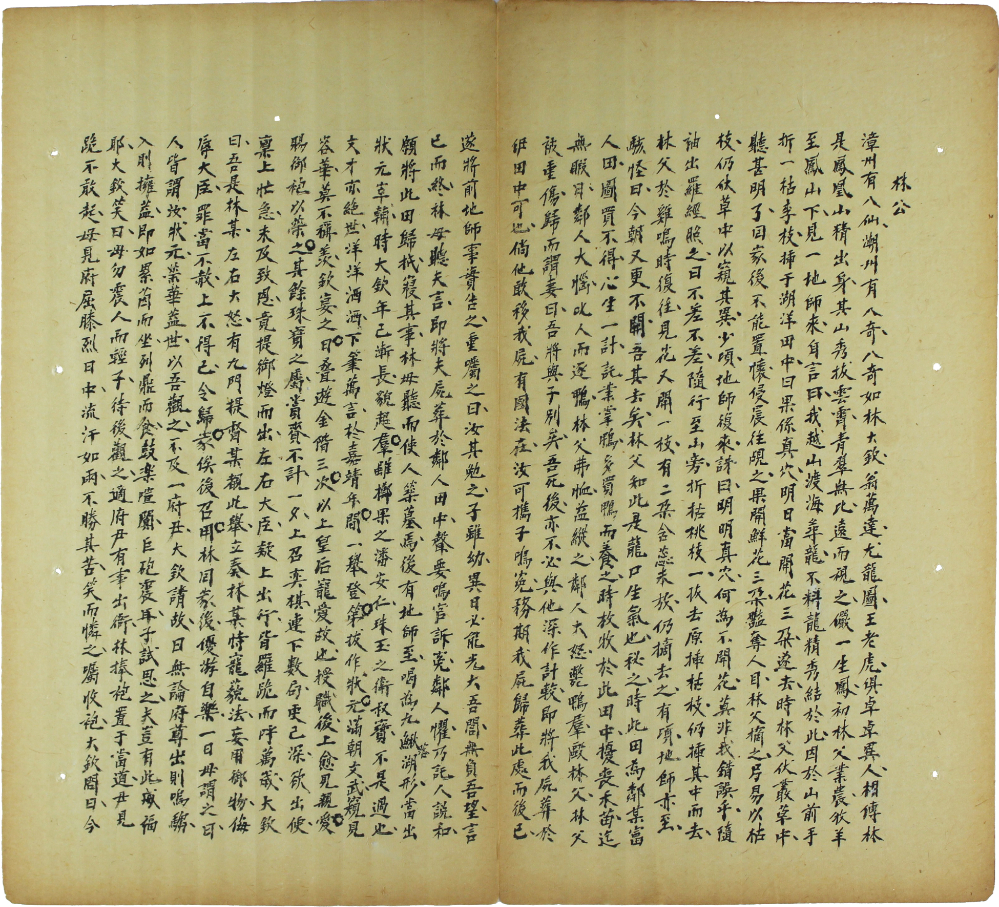 林公
漳州有八仙潮州有八奇八奇如林大欽翁萬達尤龍圖王老虎俱卓卓異人相傳林
是鳳凰山精出身其山秀拔雲霄青翠無比遠而視之儼一生鳳初林父業農牧羊
至鳳山下見一地師來自言曰我越山渡海尋龍不料龍精秀結於此因於山前手
折一枯李枝揷于湖洋田中曰果係真穴明日當開花三朶遂去時林父伏叢草中
聽甚明了回家後不能置懷侵晨往覘之果開鮮花三朶豔奪人目林父摘之另易以枯
枝仍伏草中以窺其異少頃地師復來訝曰明明真穴何為不開花莫非我錯誤乎隨
訕出羅經照之曰不差不差隨行至山旁折枯桃枝一扳去原揷枯枝仍揷其中而去
林父於雞鳴時復往見花又開一枝有二朶含蕊未放仍摘去之有頃地師亦至
駭怪曰今朝又更不開吾其去矣林父知此是龍口生氣也秘之時此田為鄰某富
人田圖買不得心生一計託業掌鴨多買鴨而養之時放牧於此田中擾喪禾苗迄
無暇日鄰人大惱叱人而逐鴨林父弗恤益縱之鄰人大怒斃鴨羣毆林父林父
被重傷歸而謂妻曰吾將與子別矣吾死後亦不必與他深作計較即將我屍葬於
伊田中可也倘他敢移我屍有國法在汝可擕子鳴冤務期我屍歸葬此處而後已
遂將前地師事實告之重囑之曰汝其勉之子雖幼異日必能光大吾閭無負吾望言
已而終林母聽夫言即將夫屍葬於鄰人田中聲要鳴官訴冤鄰人懼乃託人說和
願將此田歸抵寢其事林母聽而使人築墓焉後有地師至喝為九鰍落湖形當出
狀元宰輔時大欽年已漸長貌超羣雖擲果之潘安仁珠玉之衛叔寶不是過也
文才亦絕世洋洋洒洒下筆萬言於嘉靖年間一舉登第拔作狀元滿朝文武覩見
容華莫不稱羨欽宴之日叠遊金階三次以上皇后寵愛故也授職後上愈見親愛
賜御袍以榮之其餘珠寶之屬賞賚不計一夕上召奕棋連下數局更已深欲出使
稟上忙急未及致思竟提御燈而出左右大臣疑上出行皆羅跪而呼萬歲大欽
曰吾是林某左右大怒有九門提督某覩此舉立奏林某恃寵藐法妄用御物侮
辱大臣罪當不赦上不得已令歸家俟後召用林回家後優游自樂一日母謂之曰
人皆謂汝狀元榮華蓋世以吾觀之不及一府尹大欽請故曰無論府尊出則鳴騶
入則擁蓋即如蒞筒而坐列鼎而食鼓樂喧闐巨砲震耳子試思之夫言有此威福
耶大欽笑曰母勿震人而輕子待後觀之適府尹有事出衙林捧袍置于當道尹見
跪不敢起母見府屈膝烈日中流汗如雨不勝其苦笑而憐之囑收袍大欽問曰今